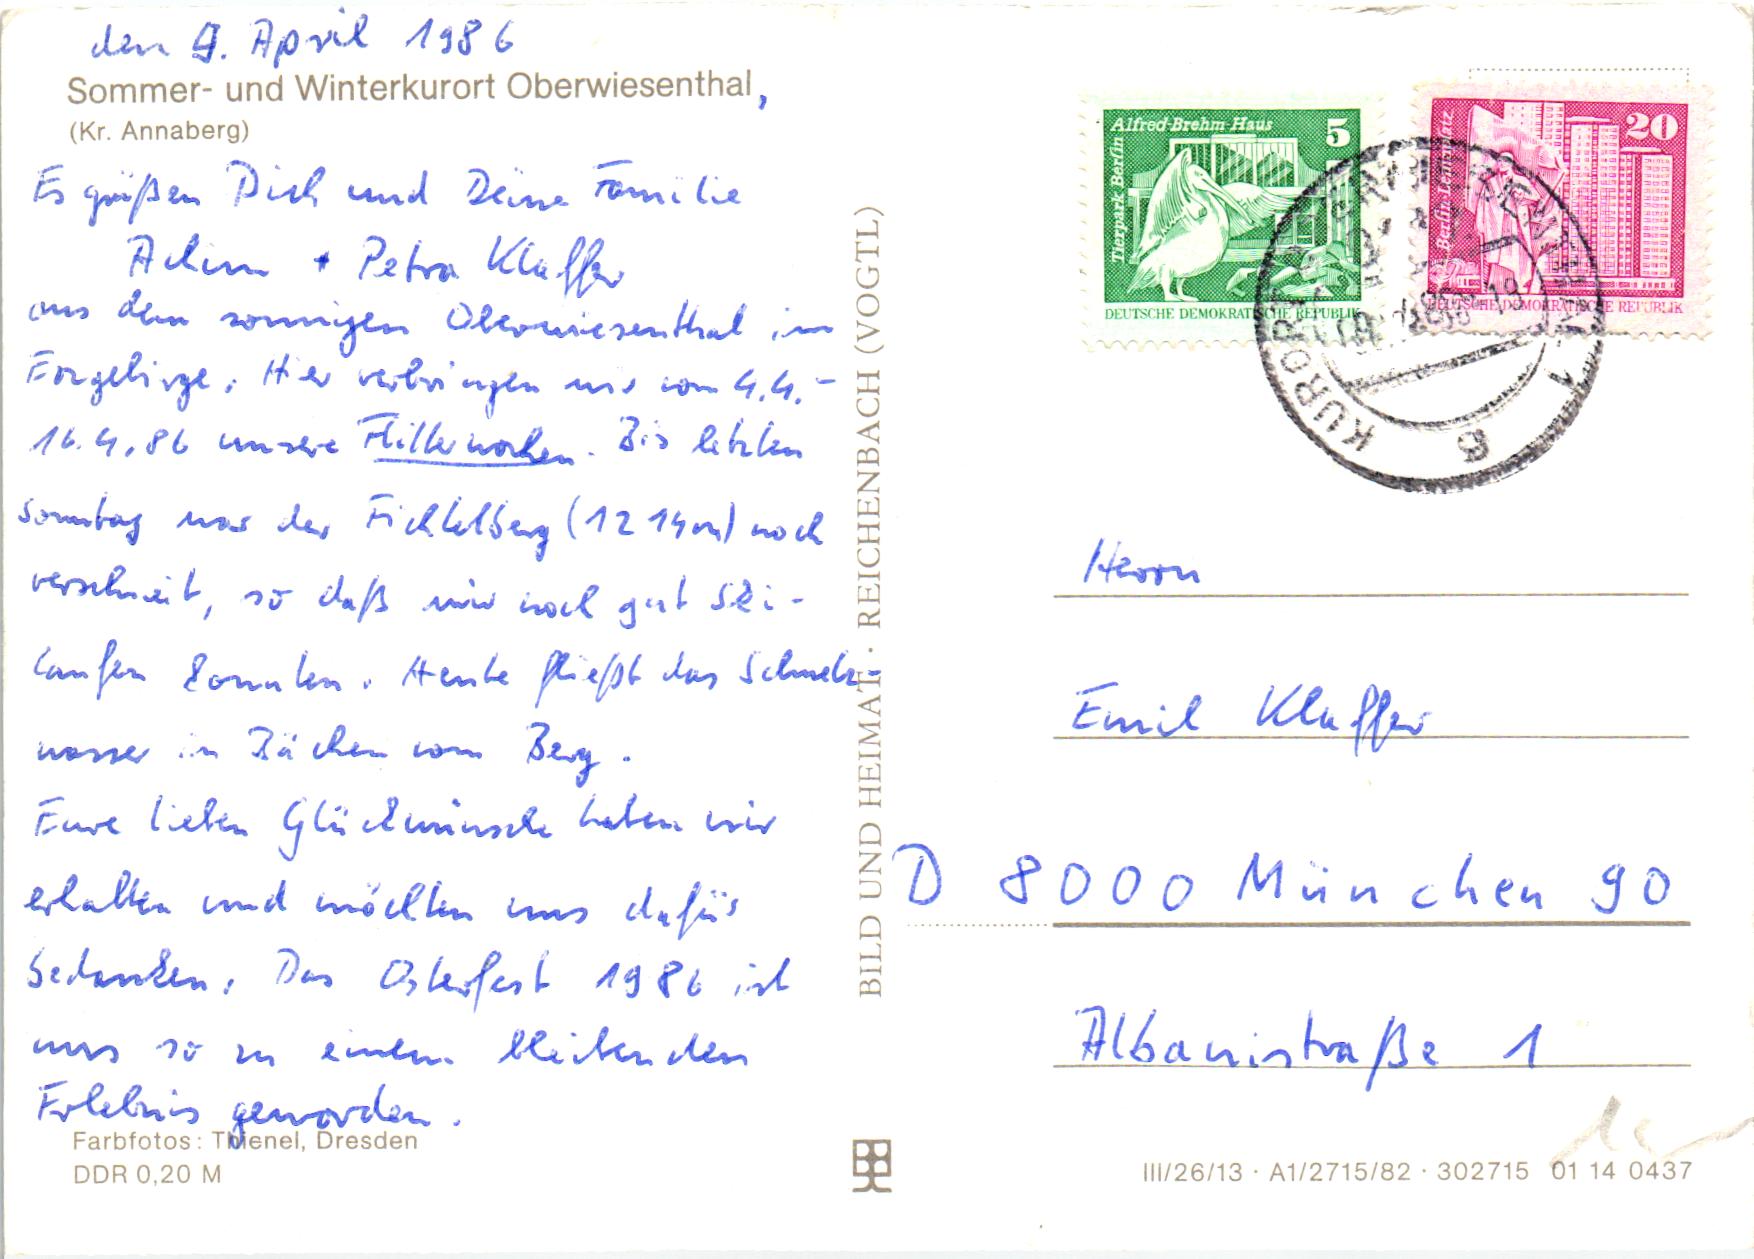 den 9. April 1986
Sommer- und Winterkurort Oberwiesenthal,
(Kr. Annaberg)
Es grüßen Dich und Deine Familie
Achim + Petra Klaffer
aus dem sonnigen Oberwiesenthal im
Erzgebirge. Hier verbringen wir vom 4.4.-
16.4.86 unsere Flitterwochen. Bis letzten
Sonntag war der Fichtelberg (1214m) noch
verschneit, so daß wir noch gut Ski-
laufen konnten. Heute fließt das Schmelz-
wasser in Bächen vom Berg.
Eure lieben Glückwünsche haben wir
erhalten und möchten uns dafür
bedanken. Das Osterfest 1986 ist
uns so zu einem bleibenden
Erlebnis geworden.
Farbfotos: Thienel, Dresden
DDR 0,20 M
BILD UND HEIMAT · REICHENBACH (VOGTL)
Alfred-Brehm-Haus
5
Tierpark Berlin
DEUTSCHE DEMOKRATISCHE REPUBLIK
20
Berlin
DEUTSCHE DEMOKRATISCHE REPUBLIK
KURORT
6
Herrn
Emil Klaffer
D 8000 München 90
Albanistraße 1
III/26/13 · A1/2715/82 · 302715 01 14 0437